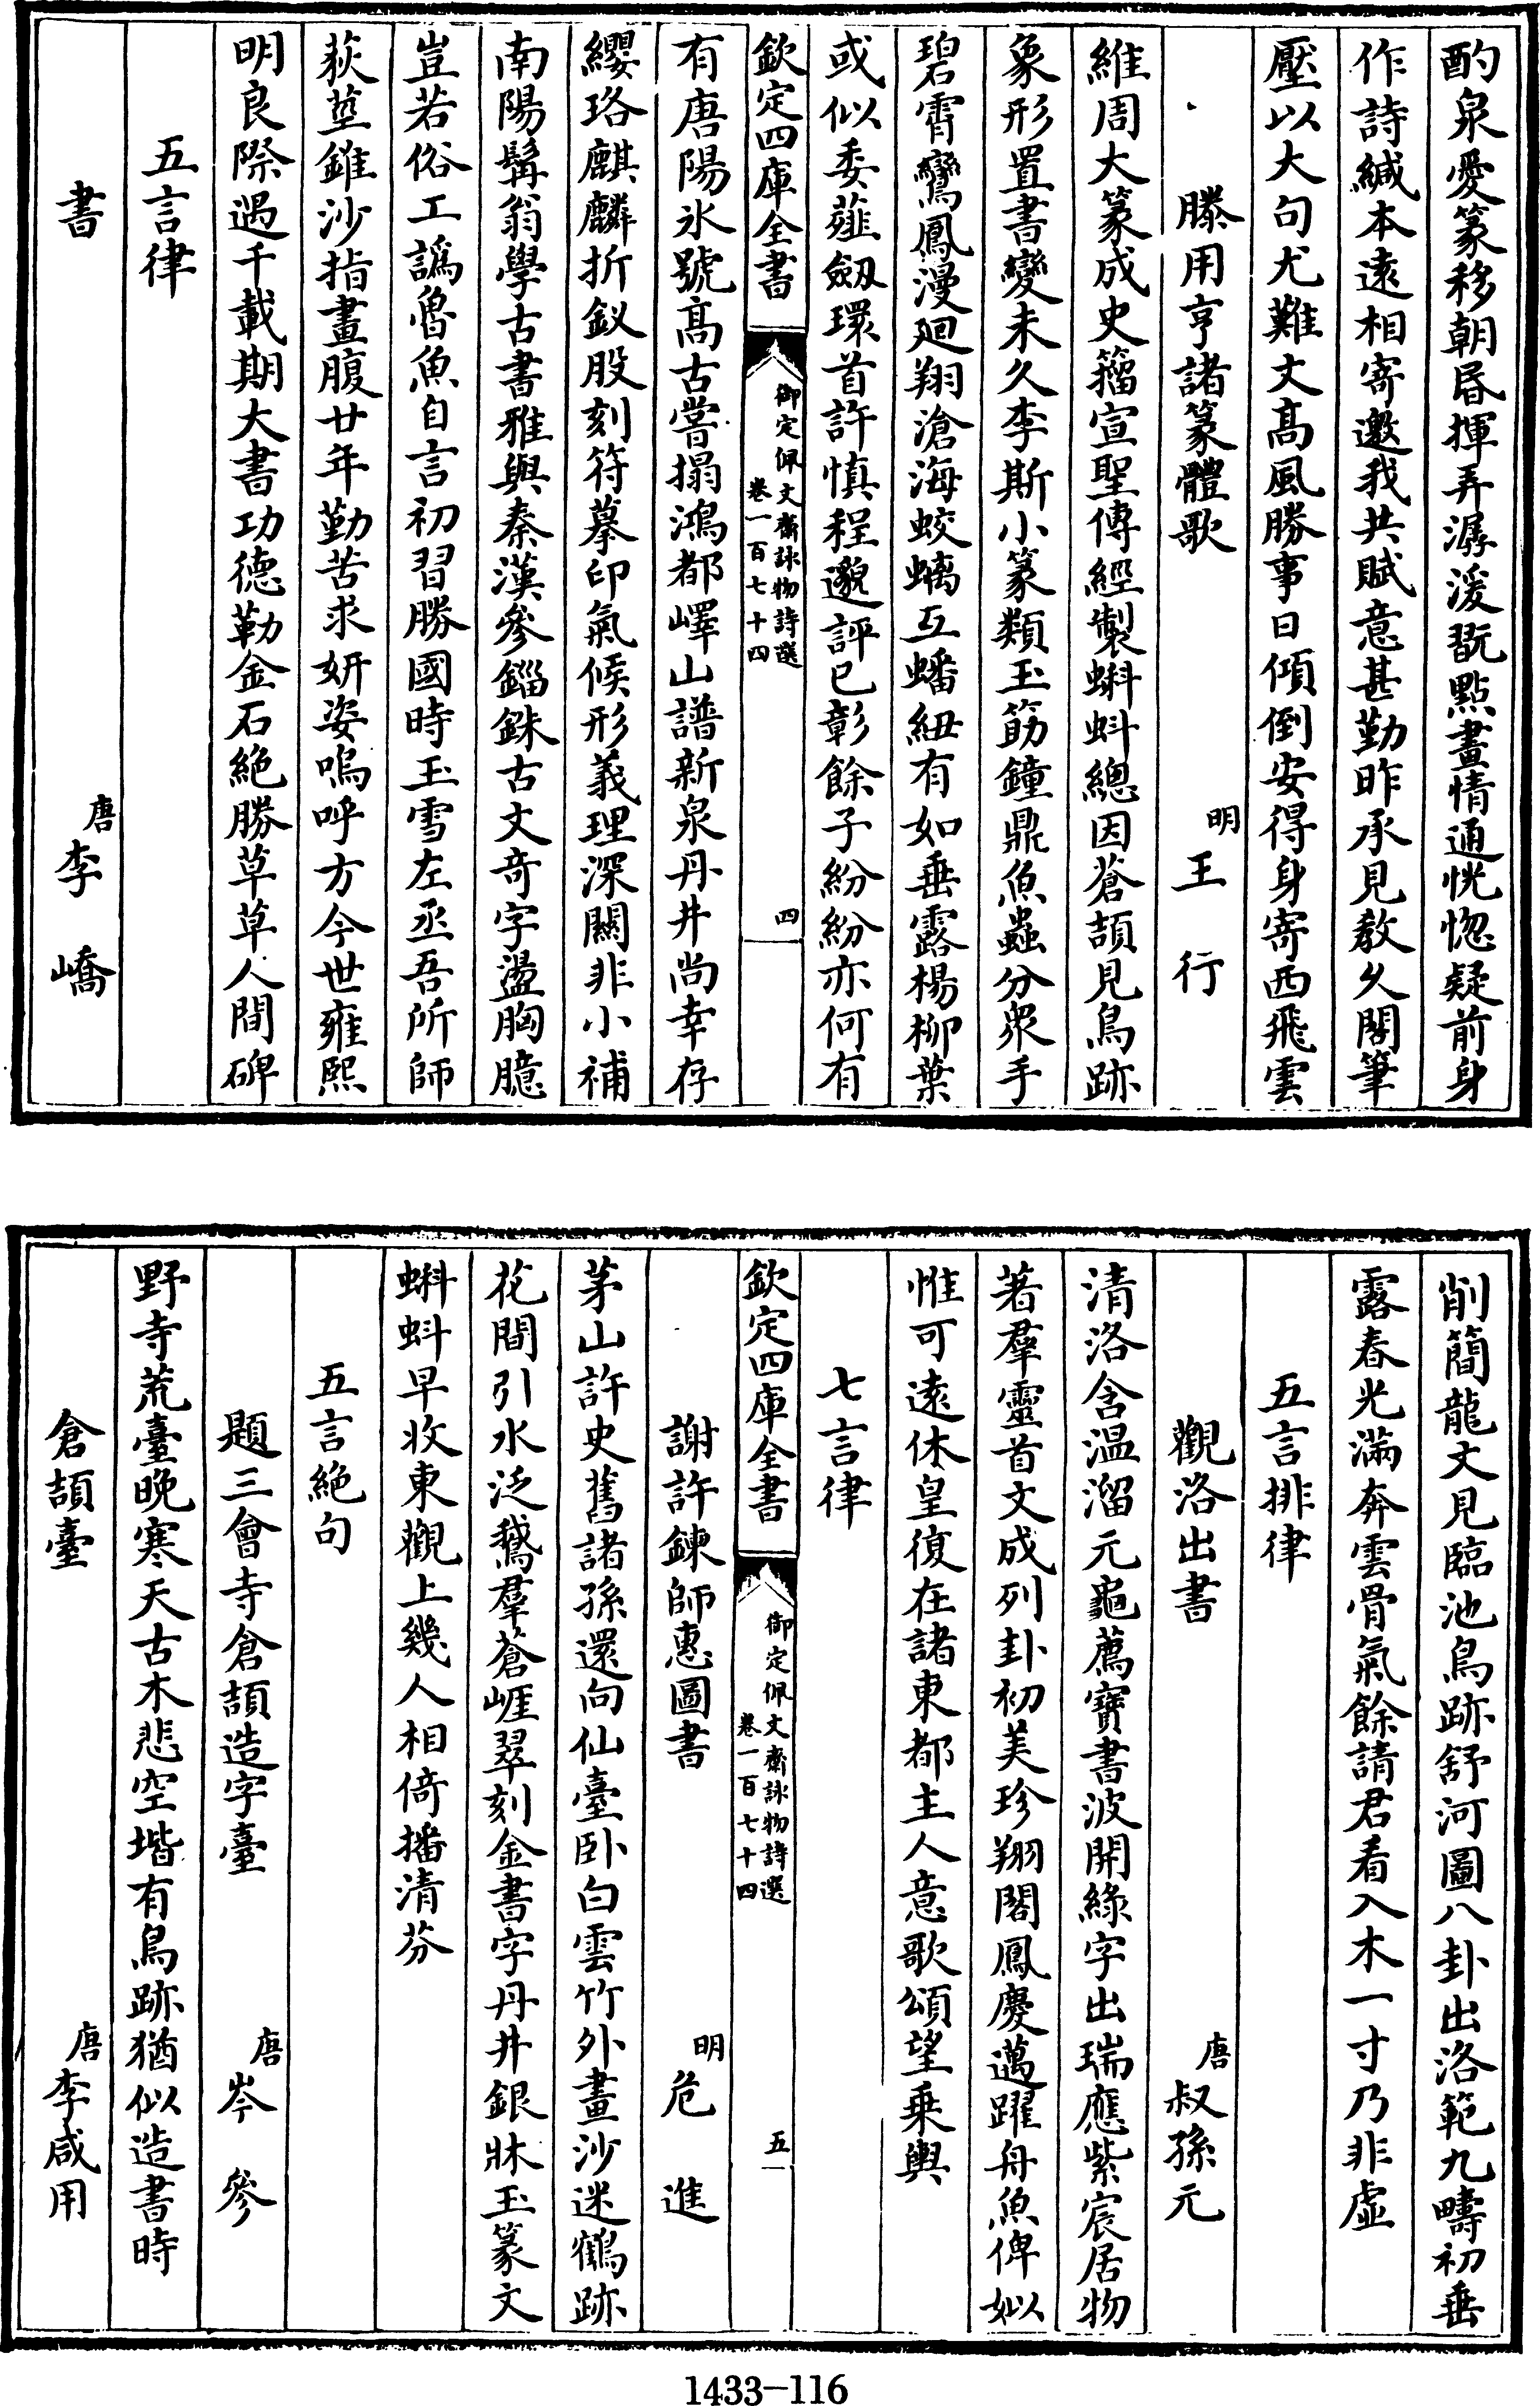 酌泉愛篆移朝昏揮弄潺湲翫點畫情通恍惚疑前身
作詩緘本遠相寄邀我共賦意甚勤昨承見教久閣筆
壓以大句尤難文高風勝事日傾倒安得身寄西飛雲
滕用亨諸篆體歌 明王行
維周大篆成史籀宣聖傳經製蝌蚪總因蒼頡見鳥跡
象形置書變未久李斯小篆類玉筯鐘鼎魚蟲分衆手
碧霄鸞鳳漫廻翔滄海蛟螭互蟠紐有如垂露楊柳葉
或似委薤劔環首許慎程邈評已彰餘子紛紛亦何有
欽定四庫全書 御定佩文齋詠物詩選 卷一百七十四 四
有唐陽氷號高古嘗搨鴻都嶧山譜新泉丹井尚幸存
纓珞麒麟折釵股刻符摹印氣候形義理深關非小補
南陽髯翁學古書雅與秦漢參錙銖古文奇字盪胸臆
豈若俗工譌魯魚自言初習勝國時玉雪左丞吾所師
荻莖錐沙指畫腹廿年勤苦求妍姿嗚呼方今世雍熙
明良際遇千載期大書功德勒金石絶勝草草人間碑
五言律
書 唐李嶠
削簡龍文見臨池鳥跡舒河圖八卦出洛範九疇初垂
露春光滿奔雲骨氣餘請君看入木一寸乃非虛
五言排律
觀洛出書 唐叔孫元
清洛含温溜元龜薦寶書波開綠字出瑞應紫宸居物
著羣靈首文成列卦初美珍翔閣鳳慶邁躍舟魚俾姒
惟可遠休皇復在諸東都主人意歌頌望乗輿
七言律
欽定四庫全書 御定佩文齋詠物詩選 卷一百七十四 五
謝許鍊師惠圖書 明危進
茅山許史舊諸孫還向仙臺卧白雲竹外畫沙迷鶴跡
花間引水泛鵞羣蒼崕翠刻金書字丹井銀牀玉篆文
蝌蚪早收東觀上幾人相倚播清芬
五言絶句
題三會寺倉頡造字臺 唐岑參
野寺荒臺晚寒天古木悲空堦有鳥跡猶似造書時
倉頡臺 唐李咸用
1433-116